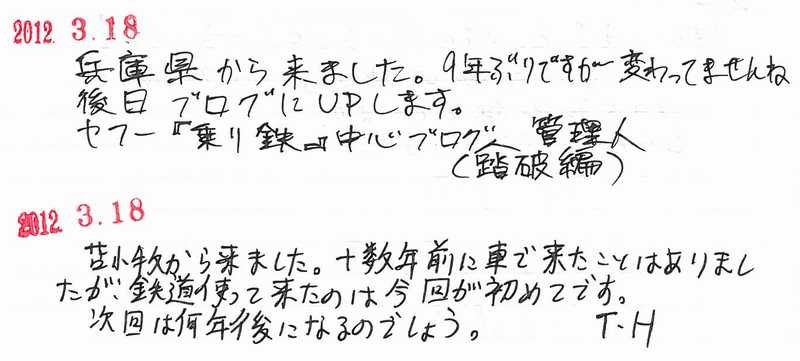 2012. 3.18
兵庫県から来ました。9年ぶりですが変わってませんね
後日ブログにUPします。
ヤフー『乗り鉄』中心ブログ 管理人
(踏破編)
2012. 3.18
苫小牧から来ました。十数年前に車で来たことはありまし
たが、鉄道使って来たのは今回が初めてです。
次回は何年後になるのでしょう。 T・H